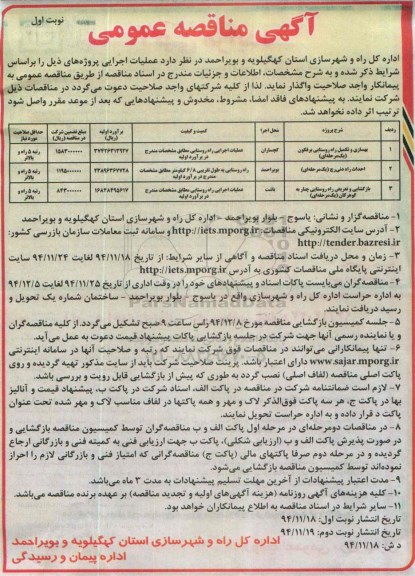 آگهی مناقصه عمومی
نوبت اول
اداره کل راه و شهرسازی استان کهگیلویه و بویراحمد در نظر دارد عملیات اجرایی پروژه‌های ذیل را براساس
شرایط ذکر شده و به شرح مشخصات، اطلاعات و جزئیات مندرج در اسناد مناقصه از طریق مناقصه عمومی به
پیمانکار واجد صلاحیت واگذار نماید. لذا از کلیه شرکتهای واجد صلاحیت دعوت می‌گردد در مناقصات ذیل
شرکت نمایند. به پیشنهادهای فاقد امضا، مشروط، مخدوش و پیشنهادهایی که بعد از موعد مقرر واصل شود
ترتیب اثر داده نخواهد شد.
ردیف شرح پروژه محل اجرا کمیت و کیفیت برآورد اولیه (ریال) مبلغ تضمین شرکت در مناقصه (ریال) حداقل صلاحیت مورد نیاز
۱ بهسازی و تکمیل راه روستایی (یک‌مرحله‌ای) گچساران عملیات اجرایی راه روستایی مطابق مشخصات مندرج در برآورد اولیه رتبه ۵ راه و بالاتر
۲ احداث راه (یک‌مرحله‌ای) بویراحمد راه روستایی به طول تقریبی ۲/۸ کیلومتر مطابق مشخصات مندرج در برآورد اولیه رتبه ۵ راه و بالاتر
۳ بازگشایی و تعریض راه روستایی (یک‌مرحله‌ای) باشت عملیات اجرایی راه روستایی مطابق مشخصات مندرج در برآورد اولیه رتبه ۵ راه و بالاتر
۱- مناقصه‌گزار و نشانی: یاسوج - بلوار بویراحمد - اداره کل راه و شهرسازی استان کهگیلویه و بویراحمد
۲- آدرس سایت الکترونیکی مناقصات: http://iets.mporg.ir و سامانه ثبت معاملات سازمان بازرسی کشور:
http://tender.bazresi.ir
۳- زمان و محل دریافت اسناد مناقصه و آگاهی از سایر شرایط: از تاریخ ۹۴/۱۱/۱۸ لغایت ۹۴/۱۱/۲۴ سایت
اینترنتی پایگاه ملی مناقصات کشوری به آدرس http://iets.mporg.ir
۴- مناقصه گران می‌بایست پاکات اسناد و پیشنهادهای خود را در وقت اداری از تاریخ ۹۴/۱۱/۲۵ لغایت ۹۴/۱۲/۵
به اداره حراست اداره کل راه و شهرسازی واقع در یاسوج - بلوار بویراحمد - ساختمان شماره یک تحویل و
رسید دریافت نمایند.
۵- جلسه کمیسیون بازگشایی مناقصه مورخ ۹۴/۱۲/۸ راس ساعت ۹ صبح تشکیل می‌گردد. از کلیه مناقصه‌گران
و یا نماینده رسمی آنها جهت شرکت در جلسه بازگشایی پاکات پیشنهاد قیمت دعوت به عمل می‌آید.
۶- تنها پیمانکارانی می‌توانند در مناقصات فوق شرکت نمایند که رتبه و صلاحیت آنها در سامانه اینترنتی
www.sajar.mporg.ir دارای اعتبار باشد. پرینت صلاحیت شرکت باید از سایت مذکور تهیه گردیده و روی
پاکت اصلی مناقصه (لفاف اصلی) نصب گردد به طوری که پیش از بازگشایی قابل رویت و بررسی باشد.
۷- لازم است ضمانتنامه شرکت در مناقصه در پاکت الف، اسناد شرکت در پاکت ب، پیشنهاد قیمت و آنالیز
بها در پاکت ج، هر سه پاکت فوق‌الذکر لاک و مهر و همه پاکتها در لفاف مناسب لاک و مهر شده تحت عنوان
پاکت د قرار داده و به اداره حراست تحویل نمایند.
۸- در مناقصات دومرحله‌ای در مرحله اول پاکت الف و ب مناقصه‌گران توسط کمیسیون مناقصه بازگشایی و
در صورت پذیرش پاکت الف و ب (ارزیابی شکلی)، پاکت ب جهت ارزیابی فنی به کمیته فنی و بازرگانی ارجاع
گردیده و در مرحله دوم صرفا پاکتهای مالی (پاکت ج) مناقصه‌گرانی که امتیاز فنی و بازرگانی لازم را احراز
نموده‌اند توسط کمیسیون مناقصه بازگشایی می‌شود.
۹- مدت اعتبار پیشنهادات از آخرین مهلت تسلیم پیشنهادات به مدت ۳ ماه می‌باشد.
۱۰- کلیه هزینه‌های آگهی روزنامه (هزینه آگهی‌های اولیه و تجدید مناقصه) بر عهده برنده مناقصه می‌باشد.
۱۱- سایر شرایط در اسناد مناقصه به اطلاع پیمانکاران خواهد بود.
تاریخ انتشار نوبت اول: ۹۴/۱۱/۱۸
تاریخ انتشار نوبت دوم: ۹۴/۱۱/۱۹
د ش: ۹۴/۱۱/۱۸
اداره کل راه و شهرسازی استان کهگیلویه و بویراحمد
اداره پیمان و رسیدگی